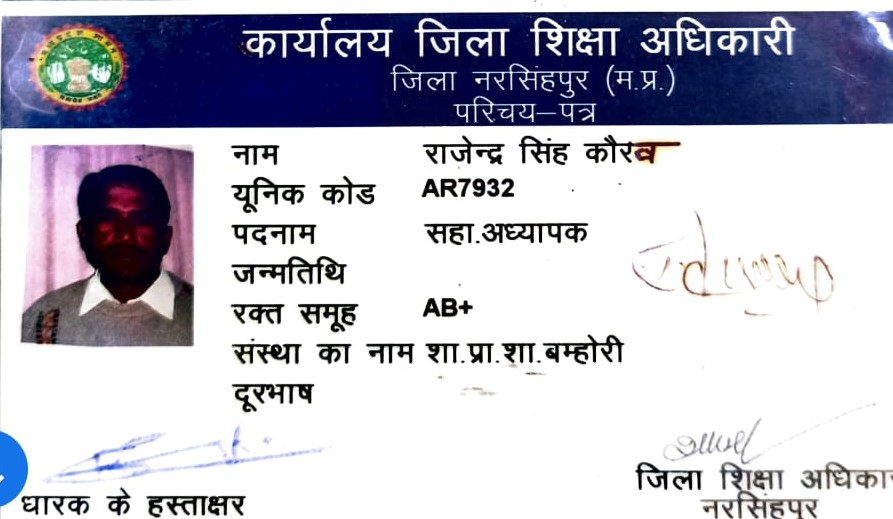 कार्यालय जिला शिक्षा अधिकारी
जिला नरसिंहपुर (म.प्र.)
परिचय–पत्र
नाम राजेन्द्र सिंह कौरव
यूनिक कोड AR7932
पदनाम सहा.अध्यापक
जन्मतिथि
रक्त समूह AB+
संस्था का नाम शा.प्रा.शा.बम्होरी
दूरभाष
धारक के हस्ताक्षर
जिला शिक्षा अधिकार
नरसिंहपुर